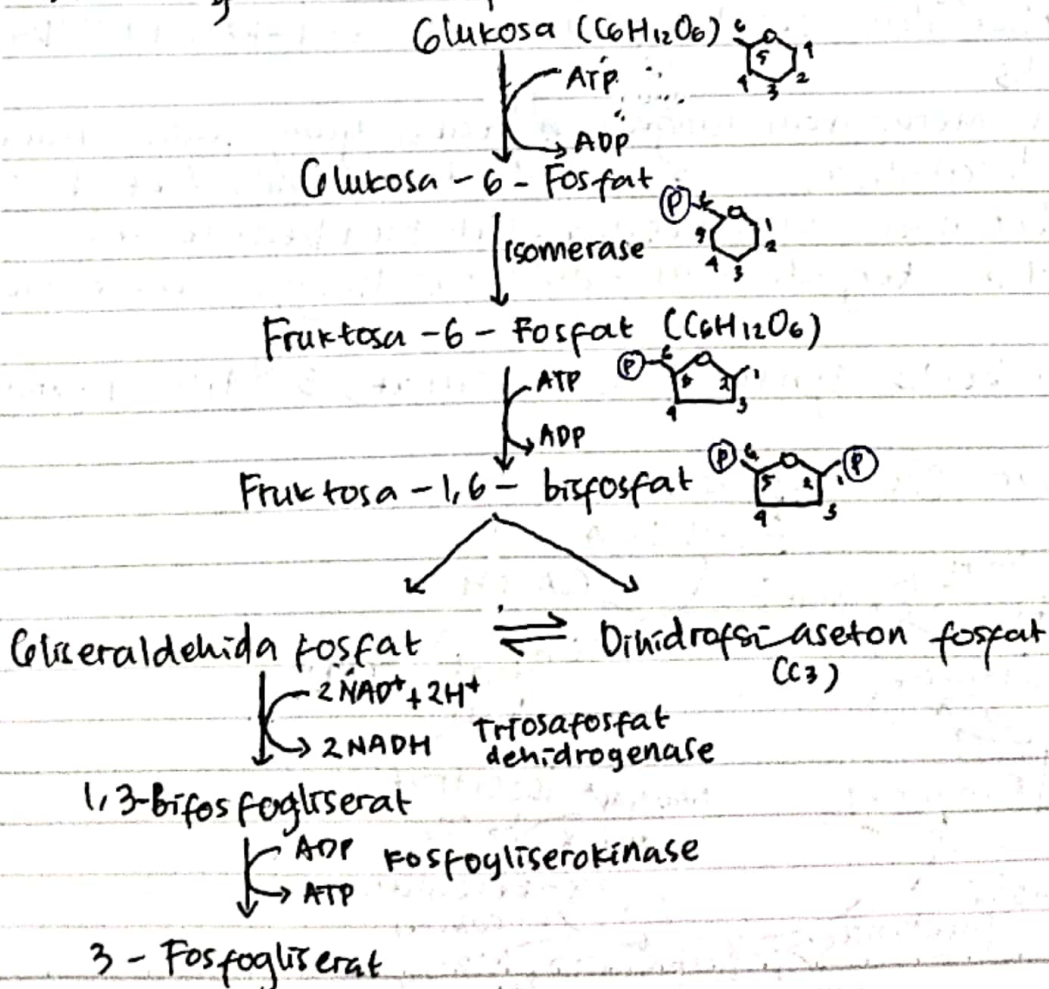 Glukosa (C6H12O6) 6 5 1 4 2 3
ATP
ADP
Glukosa - 6 - Fosfat
P 6 5 1 2 4 3
Isomerase
Fruktosa - 6 - Fosfat (C6H12O6)
ATP P 6 5 2 1 4 3
ADP
Fruktosa - 1,6 - bisfosfat P 6 5 2 1 P 4 3
Gliseraldehida fosfat ⇌ Dihidrofsi-aseton fosfat
(C3)
2 NAD+ + 2H+
2 NADH Triosafosfat
dehidrogenase
1,3-Bifosfogliserat
ADP Fosfogliserokinase
ATP
3 - Fosfogliserat